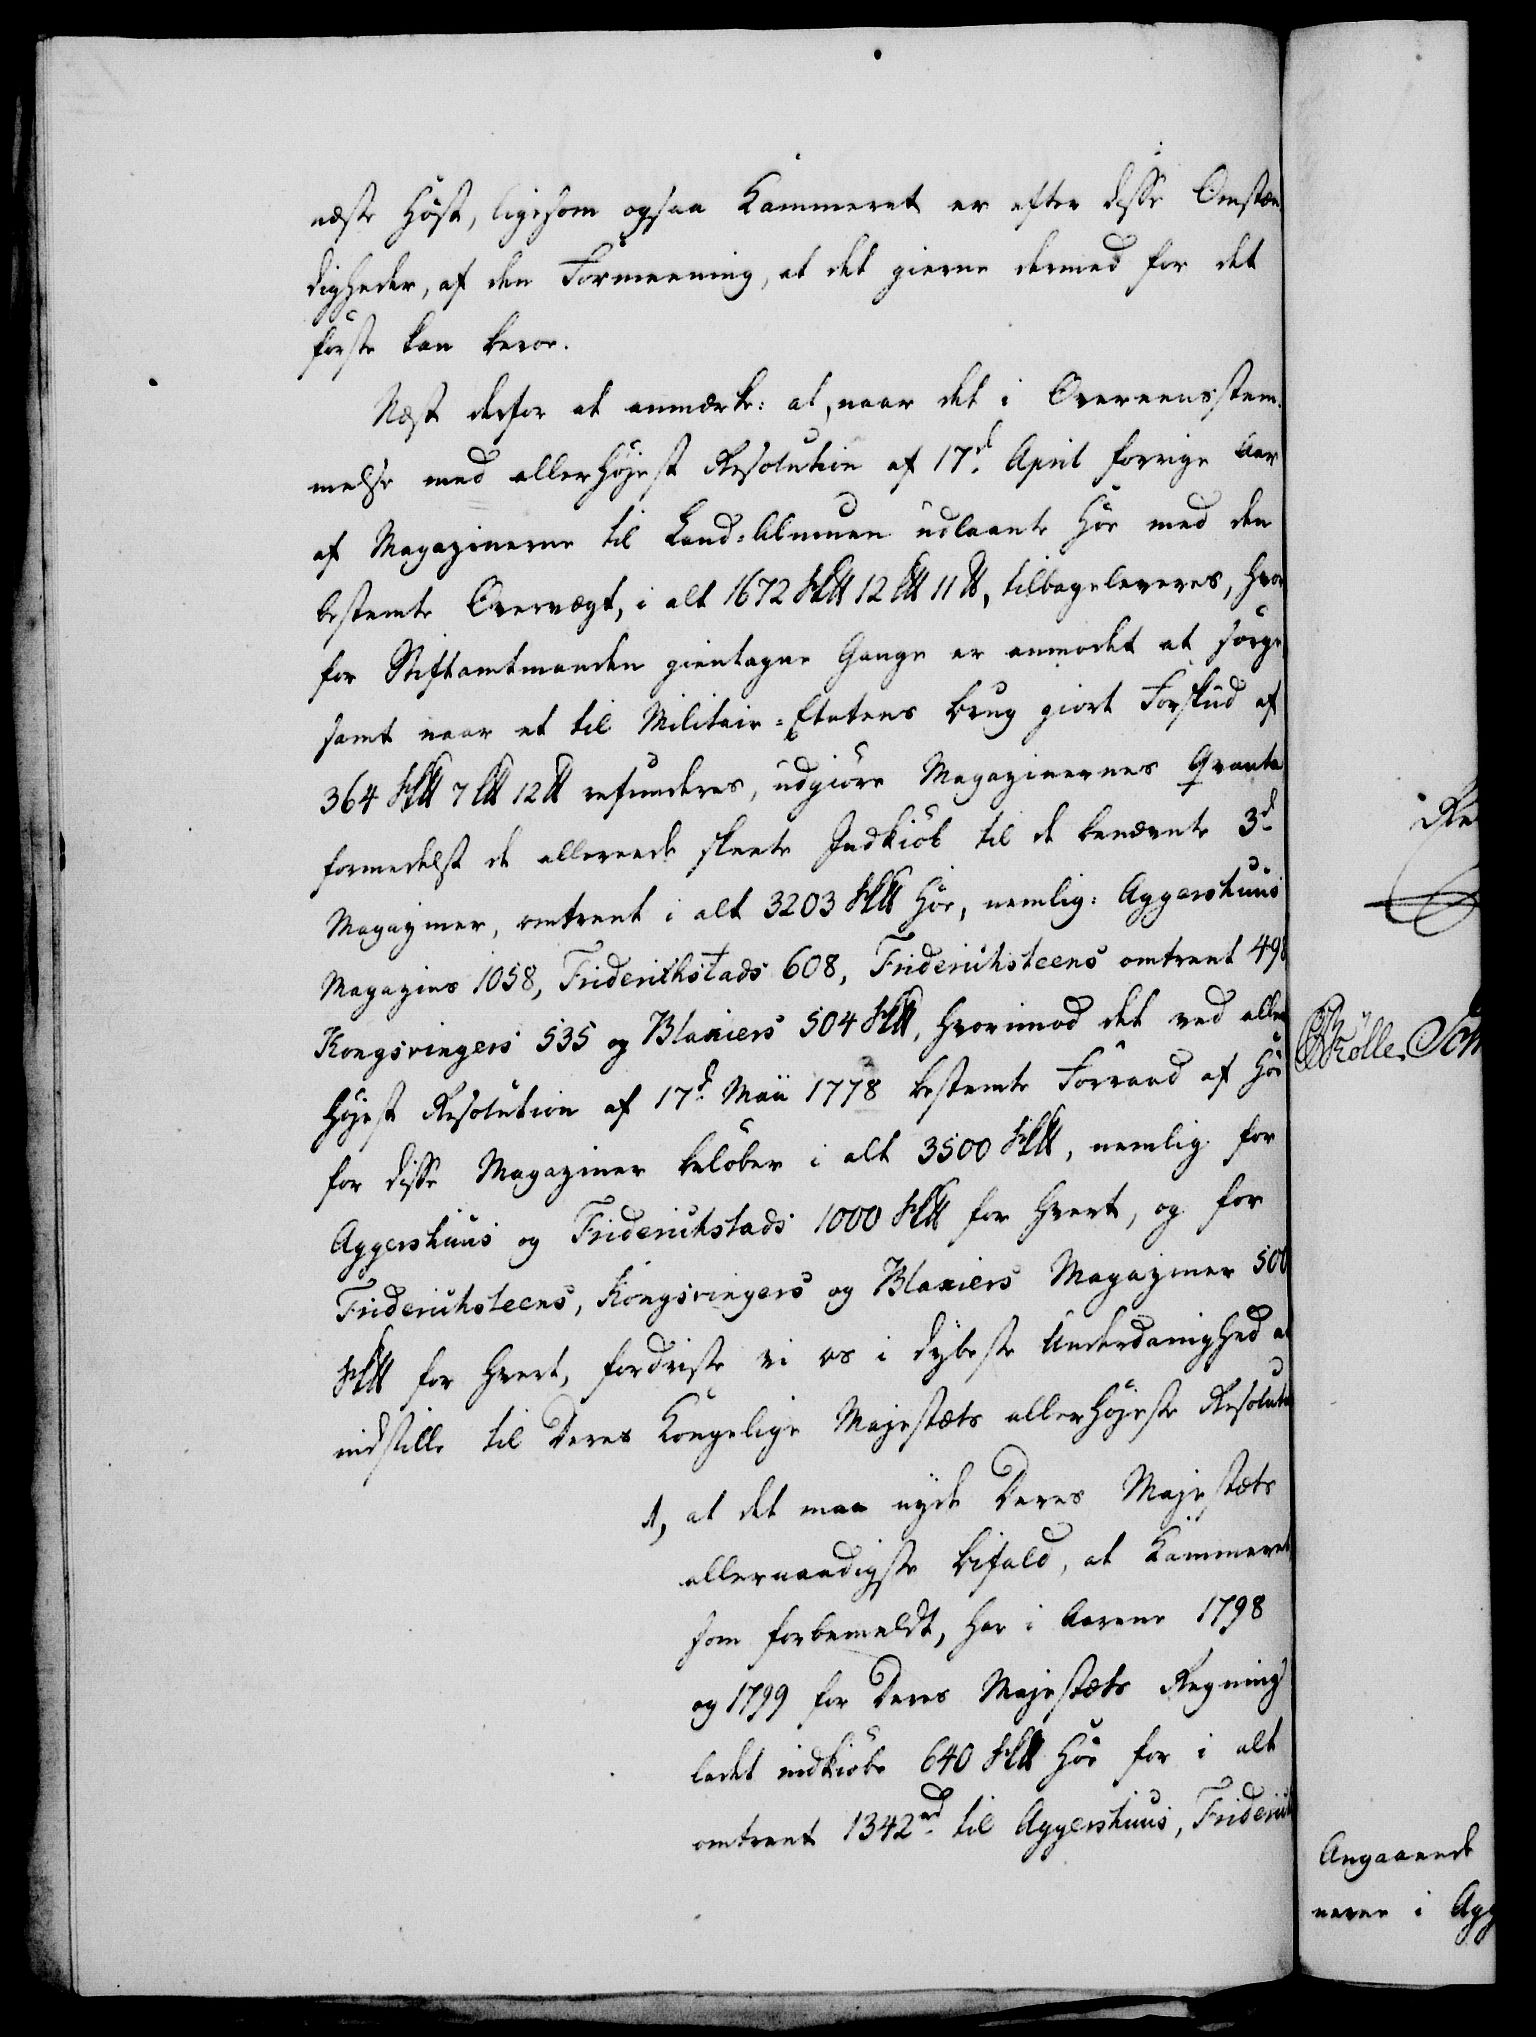 næste Høst, ligesom ogsaa Kammeret er efter disse Omstæn
digheder, af den Formeening, at det gierne dermed for det
første kan beroe.
Næst derfor at anmærke: at, naar det i Overeensstem-
melse med allerhøjest Resolution af 17d April forrige Aar
af Magazinerne til Land-Almuen udlaante Høe med den
bestemte Overvægt, i alt 1672 Sk℔ 12 L℔ 11 ℔, tilbageleveres, hvor
for Stiftamtmanden gientagne Gange er anmodet at sørge,
samt naar et til Militair-Etatens brug giort Forskud af
364 Sk℔ 7 L℔ 12 ℔ refunderes, udgiøre Magazinernes Qvanta
formedelst de allereede skeete Indkiøb til de benævnte 3de
Magaziner, omtrent i alt 3203 Sk℔ Høe, nemlig: Aggershuus
Magazins 1058, Friderichstads 608, Friderichsteens omtrent 498
Kongsvingers 535 og Blakiers 504 Sk℔, hvorimod det ved aller
høyest Resolution af 17d Maii 1778 bestemte Forraad af Høe
for disse Magaziner beløber i alt 3500 Sk℔, nemlig for
Aggershuus og Friderichstads 1000 Sk℔ for hvert, og for
Friderichsteens, Kongsvingers og Blakiers Magaziner 500
Sk℔ for hvert, fordriste vi os i dybeste Underdanighed at
indstille til Deres Kongelige Majestæts allerhøjeste Resolution
1, at det maa nyde Deres Majestæts
allernaadigste bifald, at Kammeret,
som forbemeldt, har i Aarene 1798
og 1799 for Deres Majestæts Regning
ladet indkiøbe 640 Sk℔ Høe for i alt
omtrent 1342 rd til Aggershuus, Friderich
Angaaende
nerne i Agg